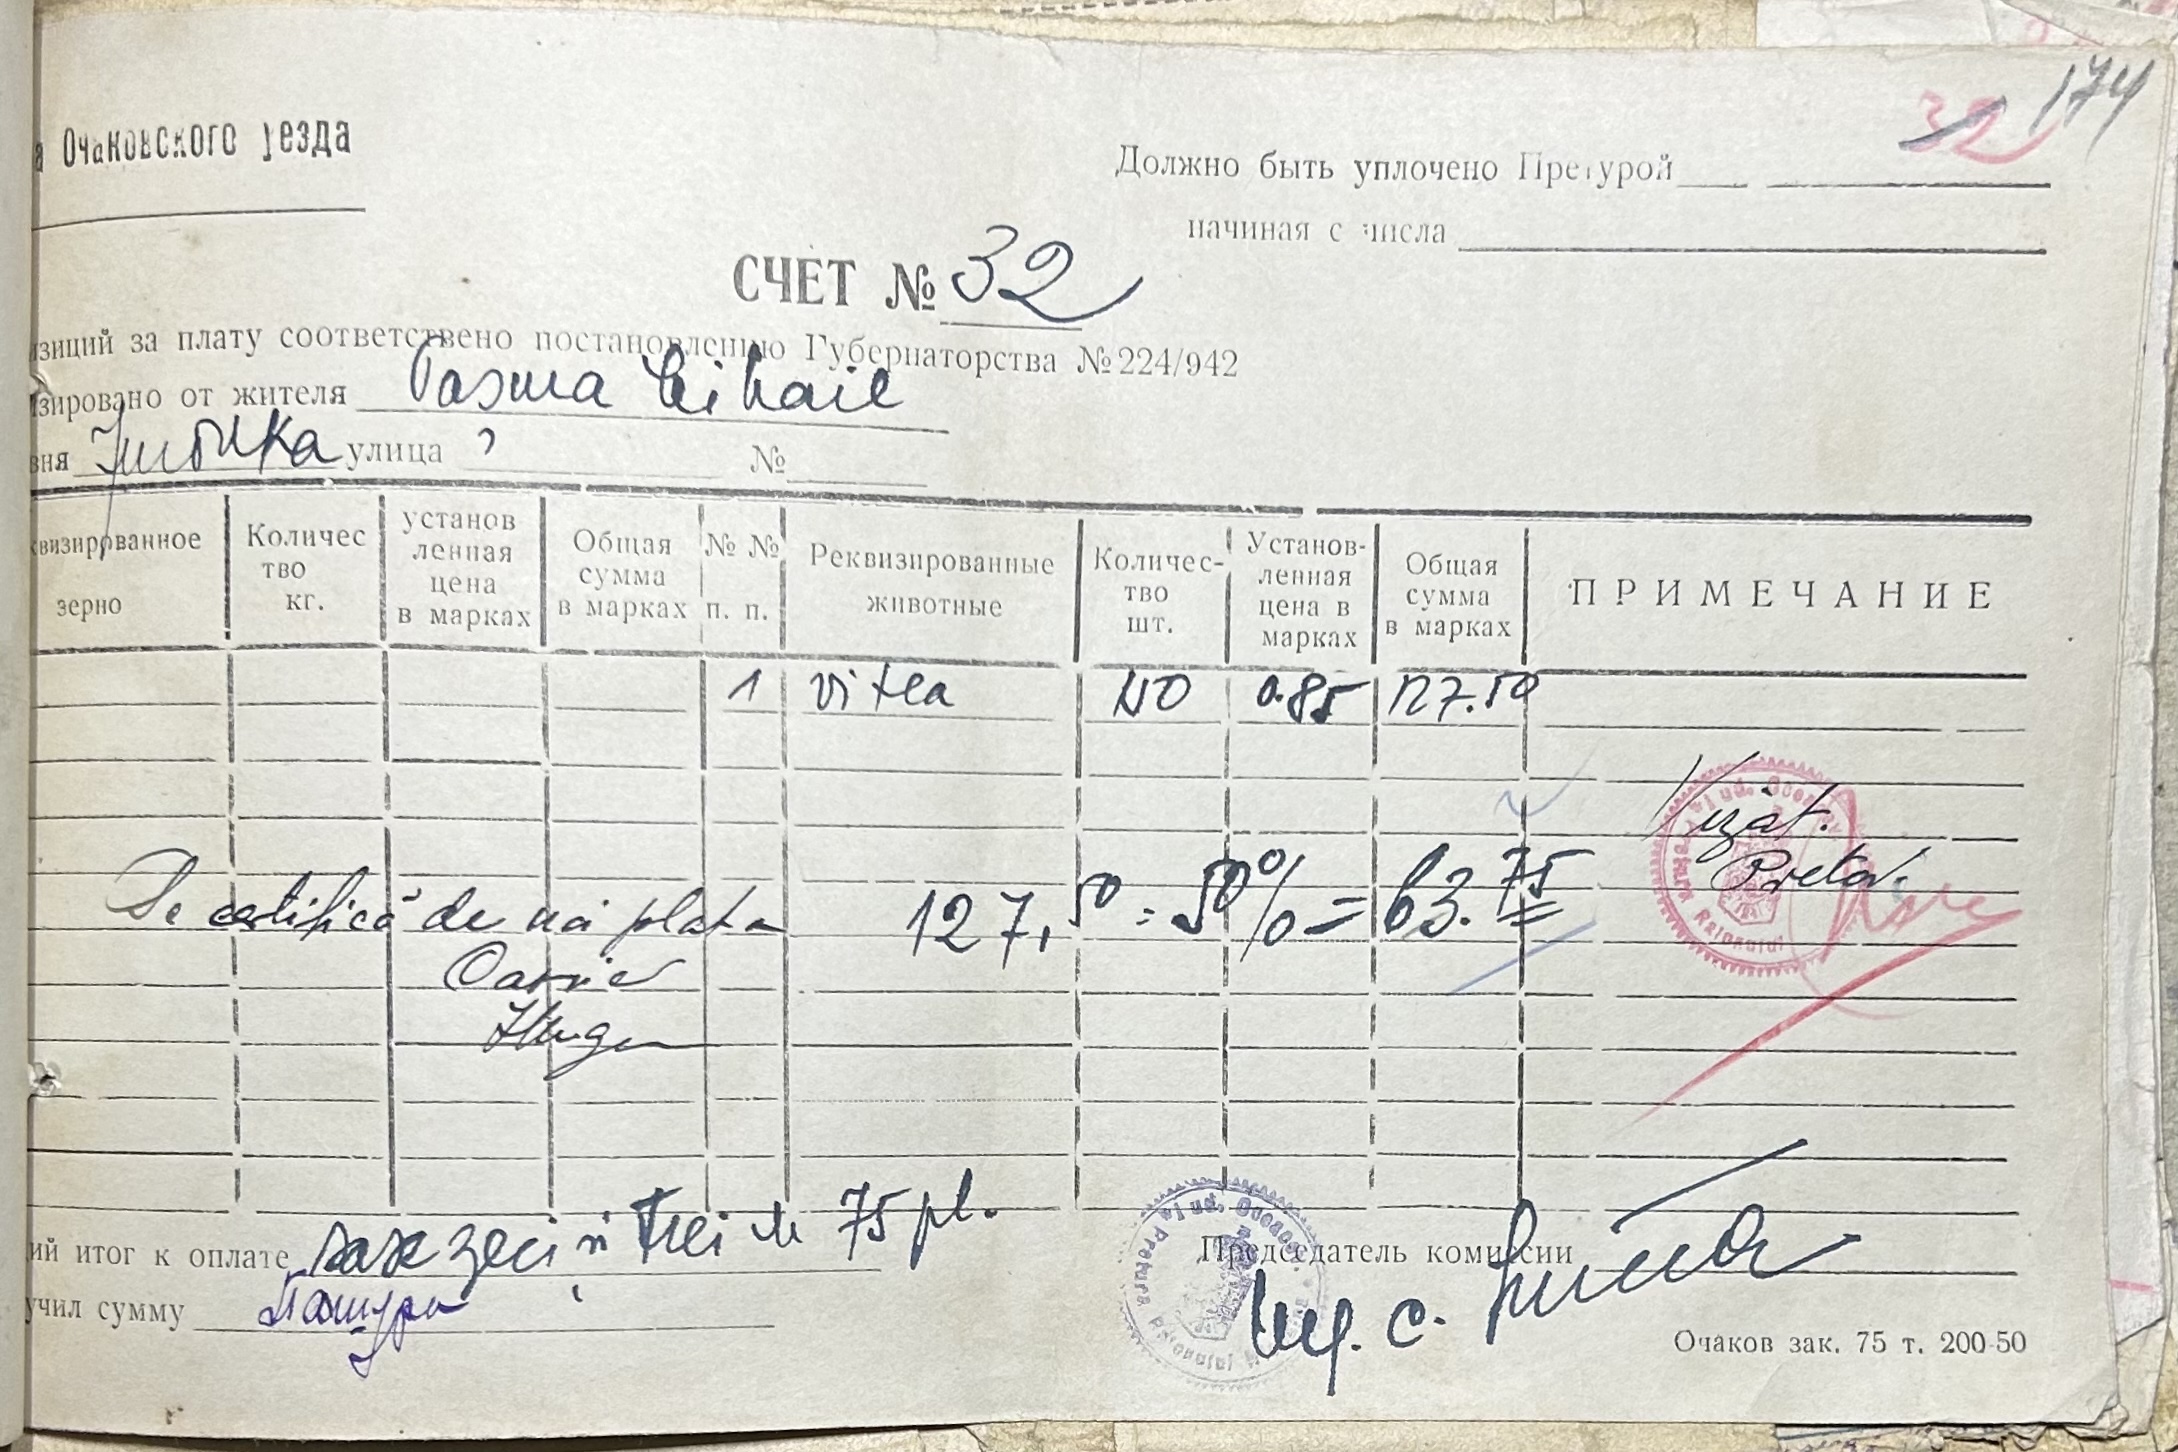 174
32
а Очаковского уезда
Должно быть уплочено Претурой
начиная с числа
СЧЕТ № 32
изиций за плату соответствено постановлению Губернаторства №224/942
изировано от жителя Mihail
вня улица ? №
квизированное зерно
Количес тво кг.
установ ленная цена в марках
Общая сумма в марках
№ № п. п.
Реквизированные животные
Количес- тво шт.
Установ- ленная цена в марках
Общая сумма в марках
ПРИМЕЧАНИЕ
1 vitea 150 0.85 127.50
Vizat.
Pretor.
Se certifică de noi plata
127,50 : 50% = 63.75
Casier
ий итог к оплате șase zeci și trei M 75 pf.
учил сумму
Председатель комиссии
Очаков зак. 75 т. 200-50